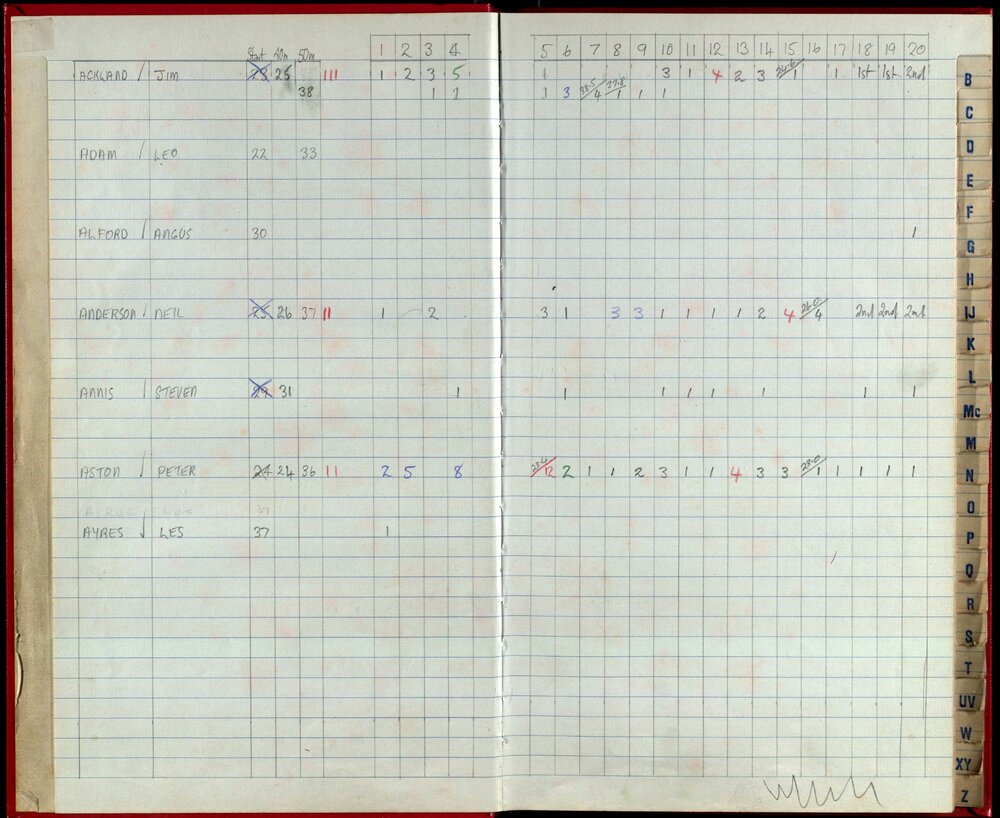 Start 40m 50m 1 2 3 4 5 6 7 8 9 10 11 12 13 14 15 16 17 18 19 20
ACKLAND / JIM 23 25 III 1 2 3 5 1 3 1 4 2 3 26.6/1 1 1st 1st 2nd
38 1 1 1 3 38.5/4 37.8/1 1 1
ADAM / LEO 22 33
ALFORD / ANGUS 30 1
ANDERSON / NEIL 25 26 37 II 1 2 3 1 3 3 1 1 1 1 2 4 26.0/4 2nd 2nd 2nd
ANNIS / STEVEN 29 31 1 1 1 1 1 1 1 1
ASTON / PETER 24 24 36 II 2 5 8 2 2 1 1 2 3 1 1 4 3 3 1 1 1 1 1
AYRES LES 37
AYRES / LES 37 1
B
C
D
E
F
G
H
IJ
K
L
Mc
M
N
O
P
Q
R
S
T
UV
W
XY
Z